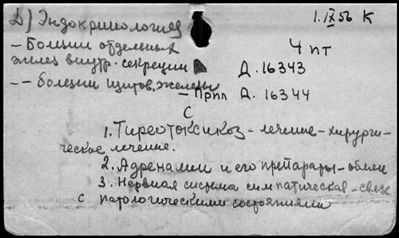 Д) Эндокринология
1.IX 56 К
— Болезни отдельных
4 пт
желез внутр. секреции
Д. 16343
— — болезни щитов. железы
— Прпп Д. 16344
С
1. Тиреотоксикоз - лечение - хирурги-
ческое лечение.
2. Адреналин и его препараты - обмен
3. Нервная система симпатическая - связь
с патологическими состояниями